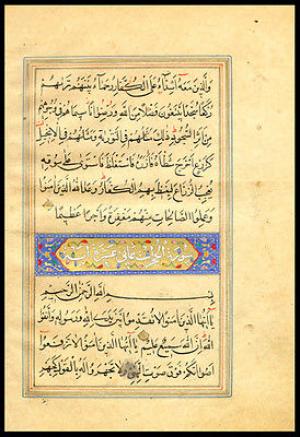 والذين معه أشداء على الكفار رحماء بينهم تراهم
ركعا سجدا يبتغون فضلا من الله ورضوانا سيماهم في وجوههم
من أثر السجود ذلك مثلهم في التورية ومثلهم في الانجيل
كزرع أخرج شطأه فآزره فاستغلظ فاستوى على سوقه
يعجب الزراع ليغيظ بهم الكفار وعد الله الذين آمنوا
وعملوا الصالحات منهم مغفرة وأجرا عظيما
سورة الحجرات ثماني عشرة آية
بسم الله الرحمن الرحيم
يا أيها الذين آمنوا لا تقدموا بين يدي الله ورسوله واتقوا
الله إن الله سميع عليم يا أيها الذين آمنوا لا ترفعوا
أصواتكم فوق صوت النبي ولا تجهروا له بالقول كجهر